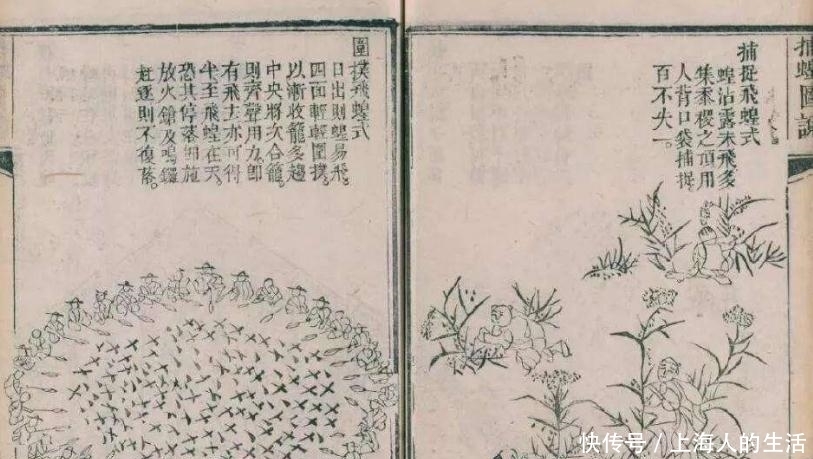 捕蝗圖說
捕捉飛蝗式
蝗沾露未飛多
集黍稷之頂用
人背口袋捕捉。
百不失一。
圍撲飛蝗式
日出則蝗易飛。
四面輕輕圍撲。
以漸收籠多趨
中央將次合籠。
則齊聲用力。即
有飛去亦可得
半至飛蝗在天。
恐其停落即施
放火鎗及鳴鑼
赶逐則不復落。
快传号/上海人的生活